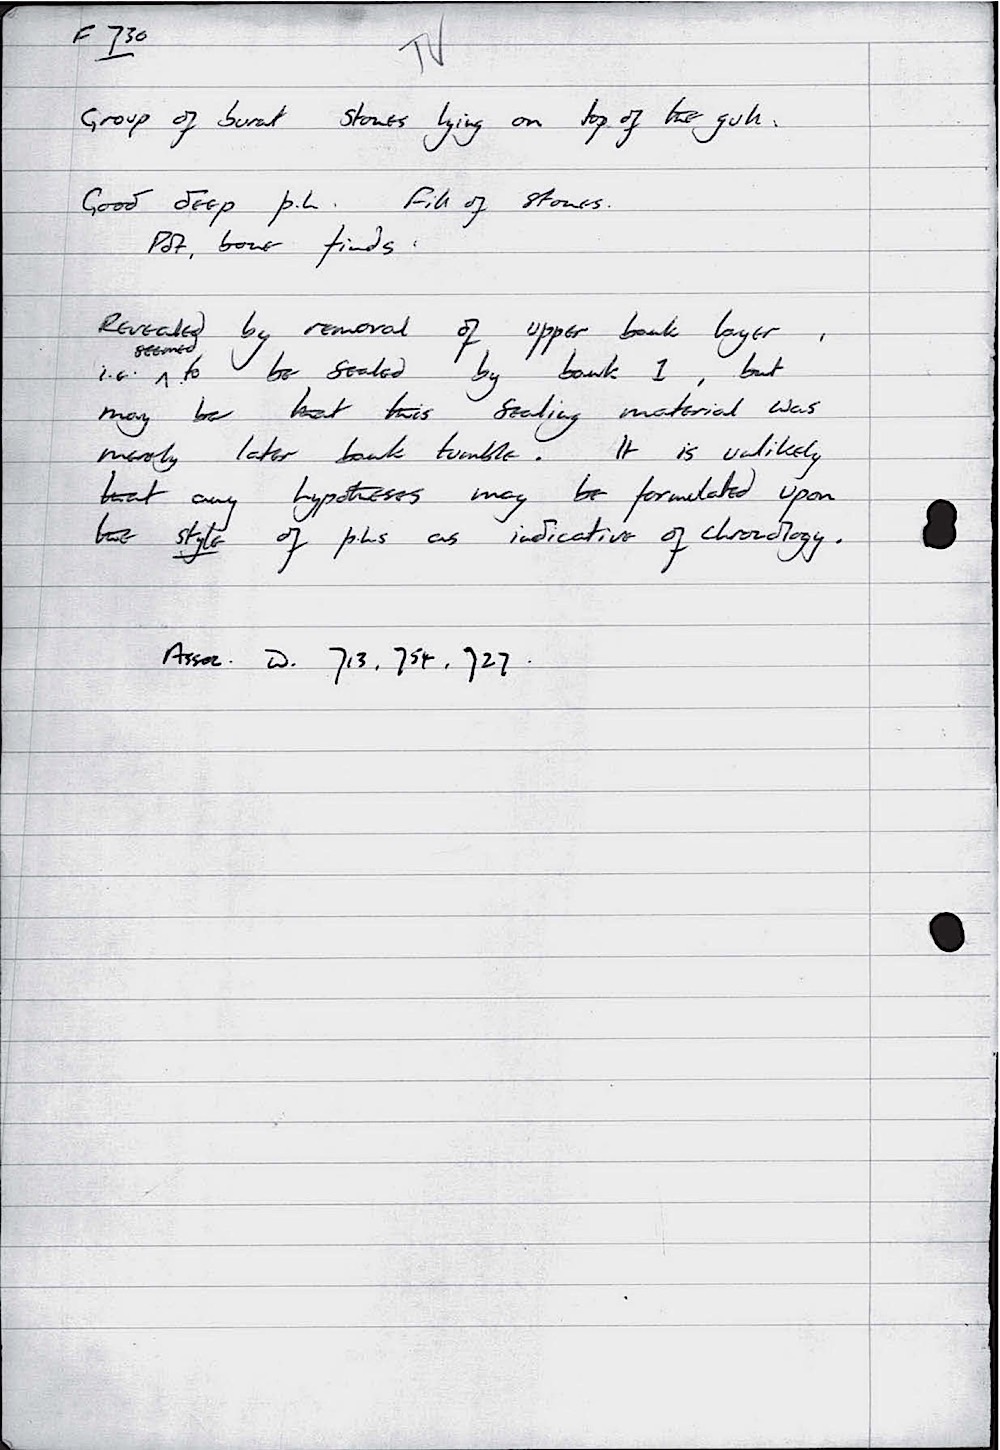 F 730
TV
Group of burnt stones lying on top of the gull.
Good deep p.h. Fill of stones.
Pot, bone finds.
Revealed by removal of upper bank layer,
i.e. ^ seemed to be sealed by bank 1, but
may be that this sealing material was
merely later bank tumble. It is unlikely
that any hypotheses may be formulated upon
the style of phs as indicative of chronology.
Assoc. 713, 754, 727.